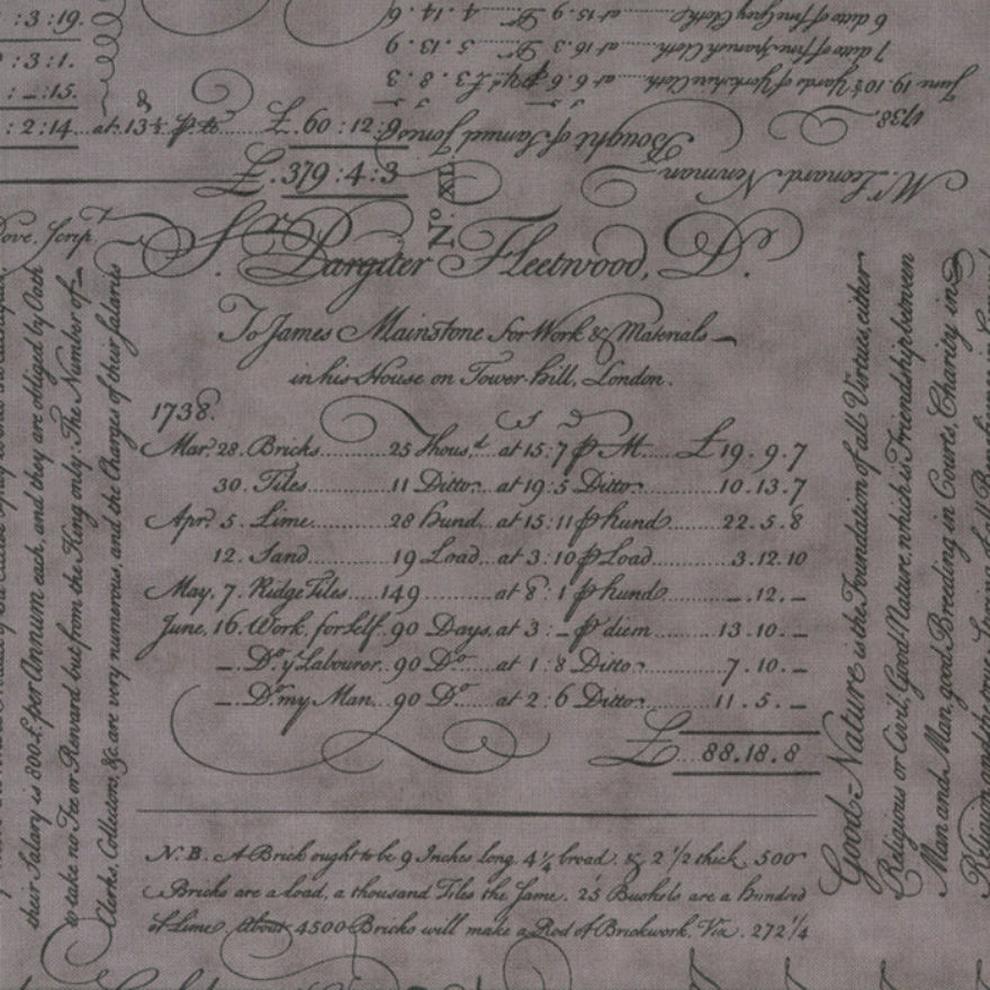 : 3 : 19.
: 3 : 1.
: _ : 15.
: 2 : 14 at 13¾ ꝑ lb £. 60 : 12 : 6
£. 379 : 4 : 3
6 ditto of fine Grey Cloth at 15. 9 4. 14. 6
7 ditto of fine Spanish Cloth at 16. 3 5. 13. 9
June 19. 10½ Yards of Yorkshire Cloth at 6. 6 ꝑ yd. £ 3. 8. 3
Bought of Samuel Jones
1738.
Mr. Leonard Newman
No. XII.
Sr. Pargiter Fleetwood, Dr.
To James Mainstone for Work & Materials_
in his House on Tower-hill, London.
1738.
Mar. 28. Bricks 25 Thous.d at 15 : 7 ꝑ M. £19. 9. 7
30. Tiles 11 Ditto at 19 : 5 Ditto 10. 13. 7
Apr. 5. Lime 28 hund. at 15 : 11 ꝑ hund 22. 5. 8
12. Sand 19 Load at 3 : 10 ꝑ Load 3. 12. 10
May, 7. Ridge Tiles 149 at 8 : 1 ꝑ hund _. 12. _
June, 16. Work, for self 90 Days, at 3 : _ ꝑ diem 13. 10. _
_ Do. yr. Labourer 90 Do at 1 : 8 Ditto 7. 10. _
_ Do. my Man 90 Do at 2 : 6 Ditto 11. 5. _
£ 88. 18. 8
N. B. A Brick ought to be 9 Inches long, 4¼ broad, & 2 1/2 thick. 500
Bricks are a load, a thousand Tiles the same. 25 Bushels are a hundred
of Lime. About 4500 Bricks will make a Rod of Brickwork, Viz. 272 1/4
their Salary is 800 £. per Annum each, and they are obliged by Oath
to take no Fee or Reward but from the King only: The Number of_
Clerks, Collectors, &c. are very numerous, and the Charges of their Salaris
Good-Nature is the Foundation of all Virtues, either
Religious or Civil, Good-Nature, which is Friendship between
Man and Man, good Breeding in Courts, Charity in